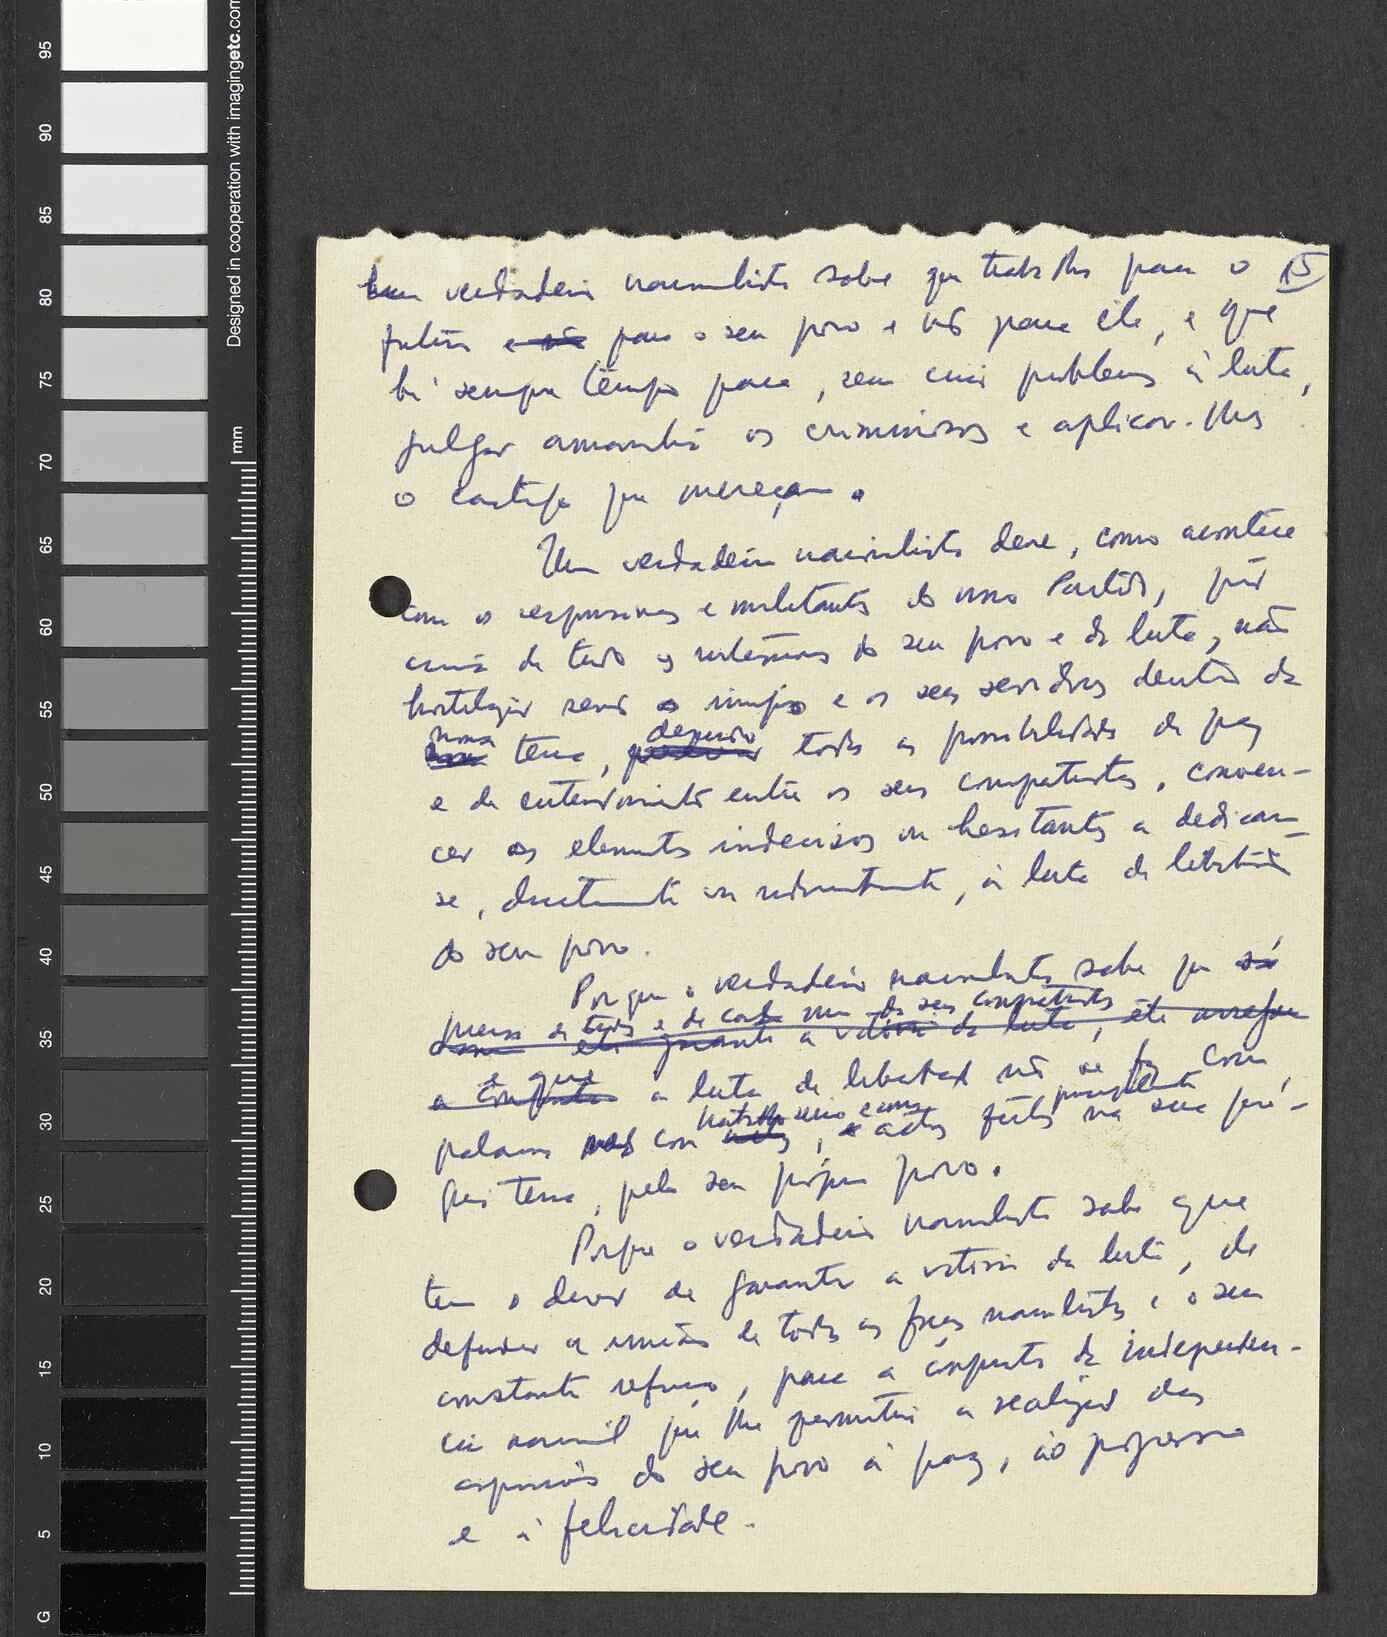 95
90
85
80
75
70
65
60
55
50
45
40
35
30
25
20
15
10
5
G
Designed in cooperation with imagingetc.com
mm
15
verdadeiro nacionalista sabe que trabalha para o
futuro para o seu povo e não para ele, e que
há sempre tempo para, sem criar problemas à luta,
julgar amanhã os criminosos e aplicar-lhes
o castigo que mereçam.
Um verdadeiro nacionalista deve, como acontece
com os responsáveis e militantes do nosso Partido, pôr
acima de tudo os interesses do seu povo e da luta, não
hostilizar senão o inimigo e os seus servidores dentro da
nossa
terra, todas as possibilidades de paz
e de entendimento entre os seus compatriotas, conven-
cer os elementos indecisos ou hesitantes a dedicar-
se, directamente ou indirectamente, à luta de libertação
do seu povo.
Porque o verdadeiro nacionalista sabe que
de todos e de cada um dos seus compatriotas
e que
a luta de libertação não se faz com
palavras mas com
actos feitos na sua pró-
pria terra, pelo seu próprio povo.
Porque o verdadeiro nacionalista sabe que
tem o dever de garantir a vitória da luta, de
defender a união de todas as forças nacionalistas e o seu
constante reforço, para a conquista da independên-
cia nacional que lhe permitirá a realização das
aspirações do seu povo à paz, ao progresso
e à felicidade.